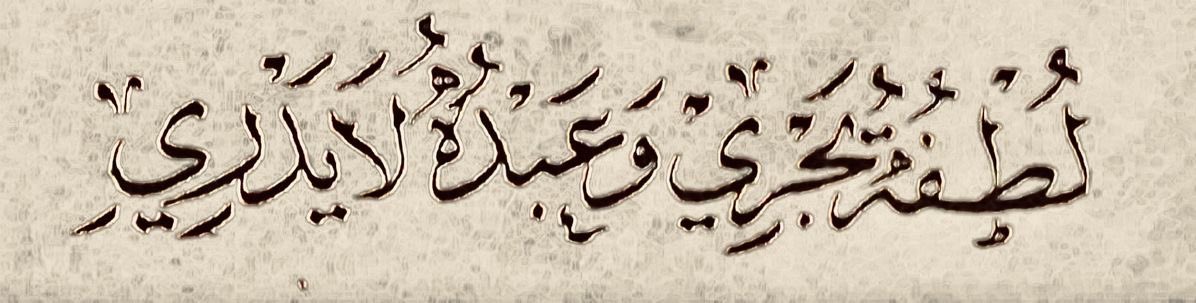 لُطْفُهُ تَجْرِي وَعَبْدُهُ لَا يَدْرِي